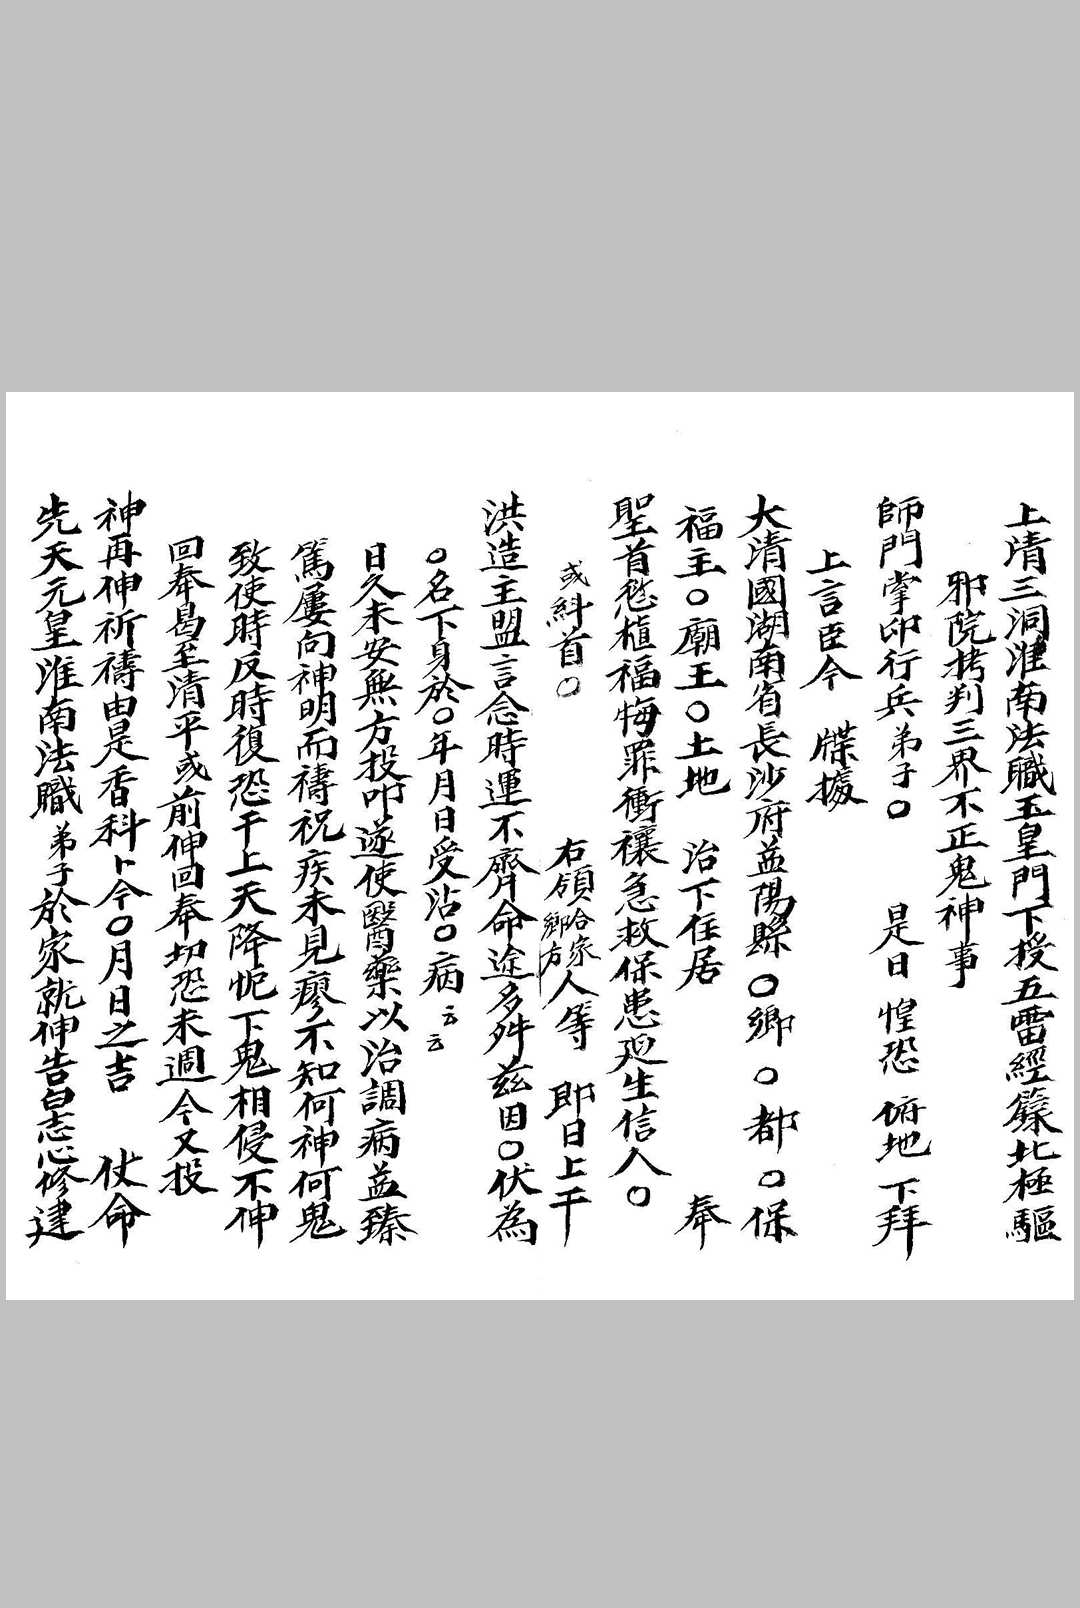 上清三洞淮南法職玉皇門下授五雷經籙北極驅
邪院拷判三界不正鬼神事
師門掌印行兵弟子○ 是日 惶恐 俯地 下拜
上言臣今 牒據
大清國湖南省長沙府益陽縣○鄉○都○保
福主○廟王○土地 治下住居 奉
聖首愆植福悔罪衝禳急救保患廷生信人○
或斜首○ 右領合家鄉方人等 即日上干
洪造主盟言念時運不齊命途多舛茲因○伏為
○名下身於○年月日受沾○病云云
日久未安無方投叩遂使醫藥以治調病益臻
篤屢向神明而禱祝疾未見廖不知何神何鬼
致使時反時復恐干上天降怩下鬼相侵不伸
回奉曷至清平或前伸回奉切恐未週今又投
神再伸祈禱由是香科卜今○月日之吉 仗命
先天元皇淮南法職弟子於家就伸告白志心修建